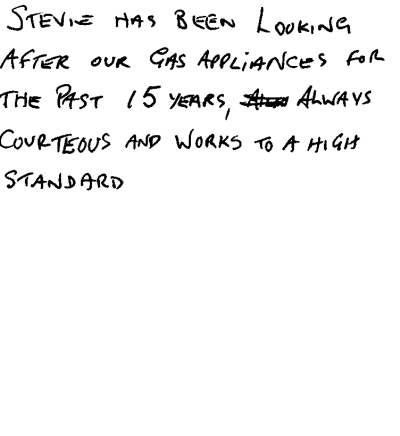 STEVIE HAS BEEN LOOKING
AFTER OUR GAS APPLIANCES FOR
THE PAST 15 YEARS, ALWAYS
COURTEOUS AND WORKS TO A HIGH
STANDARD